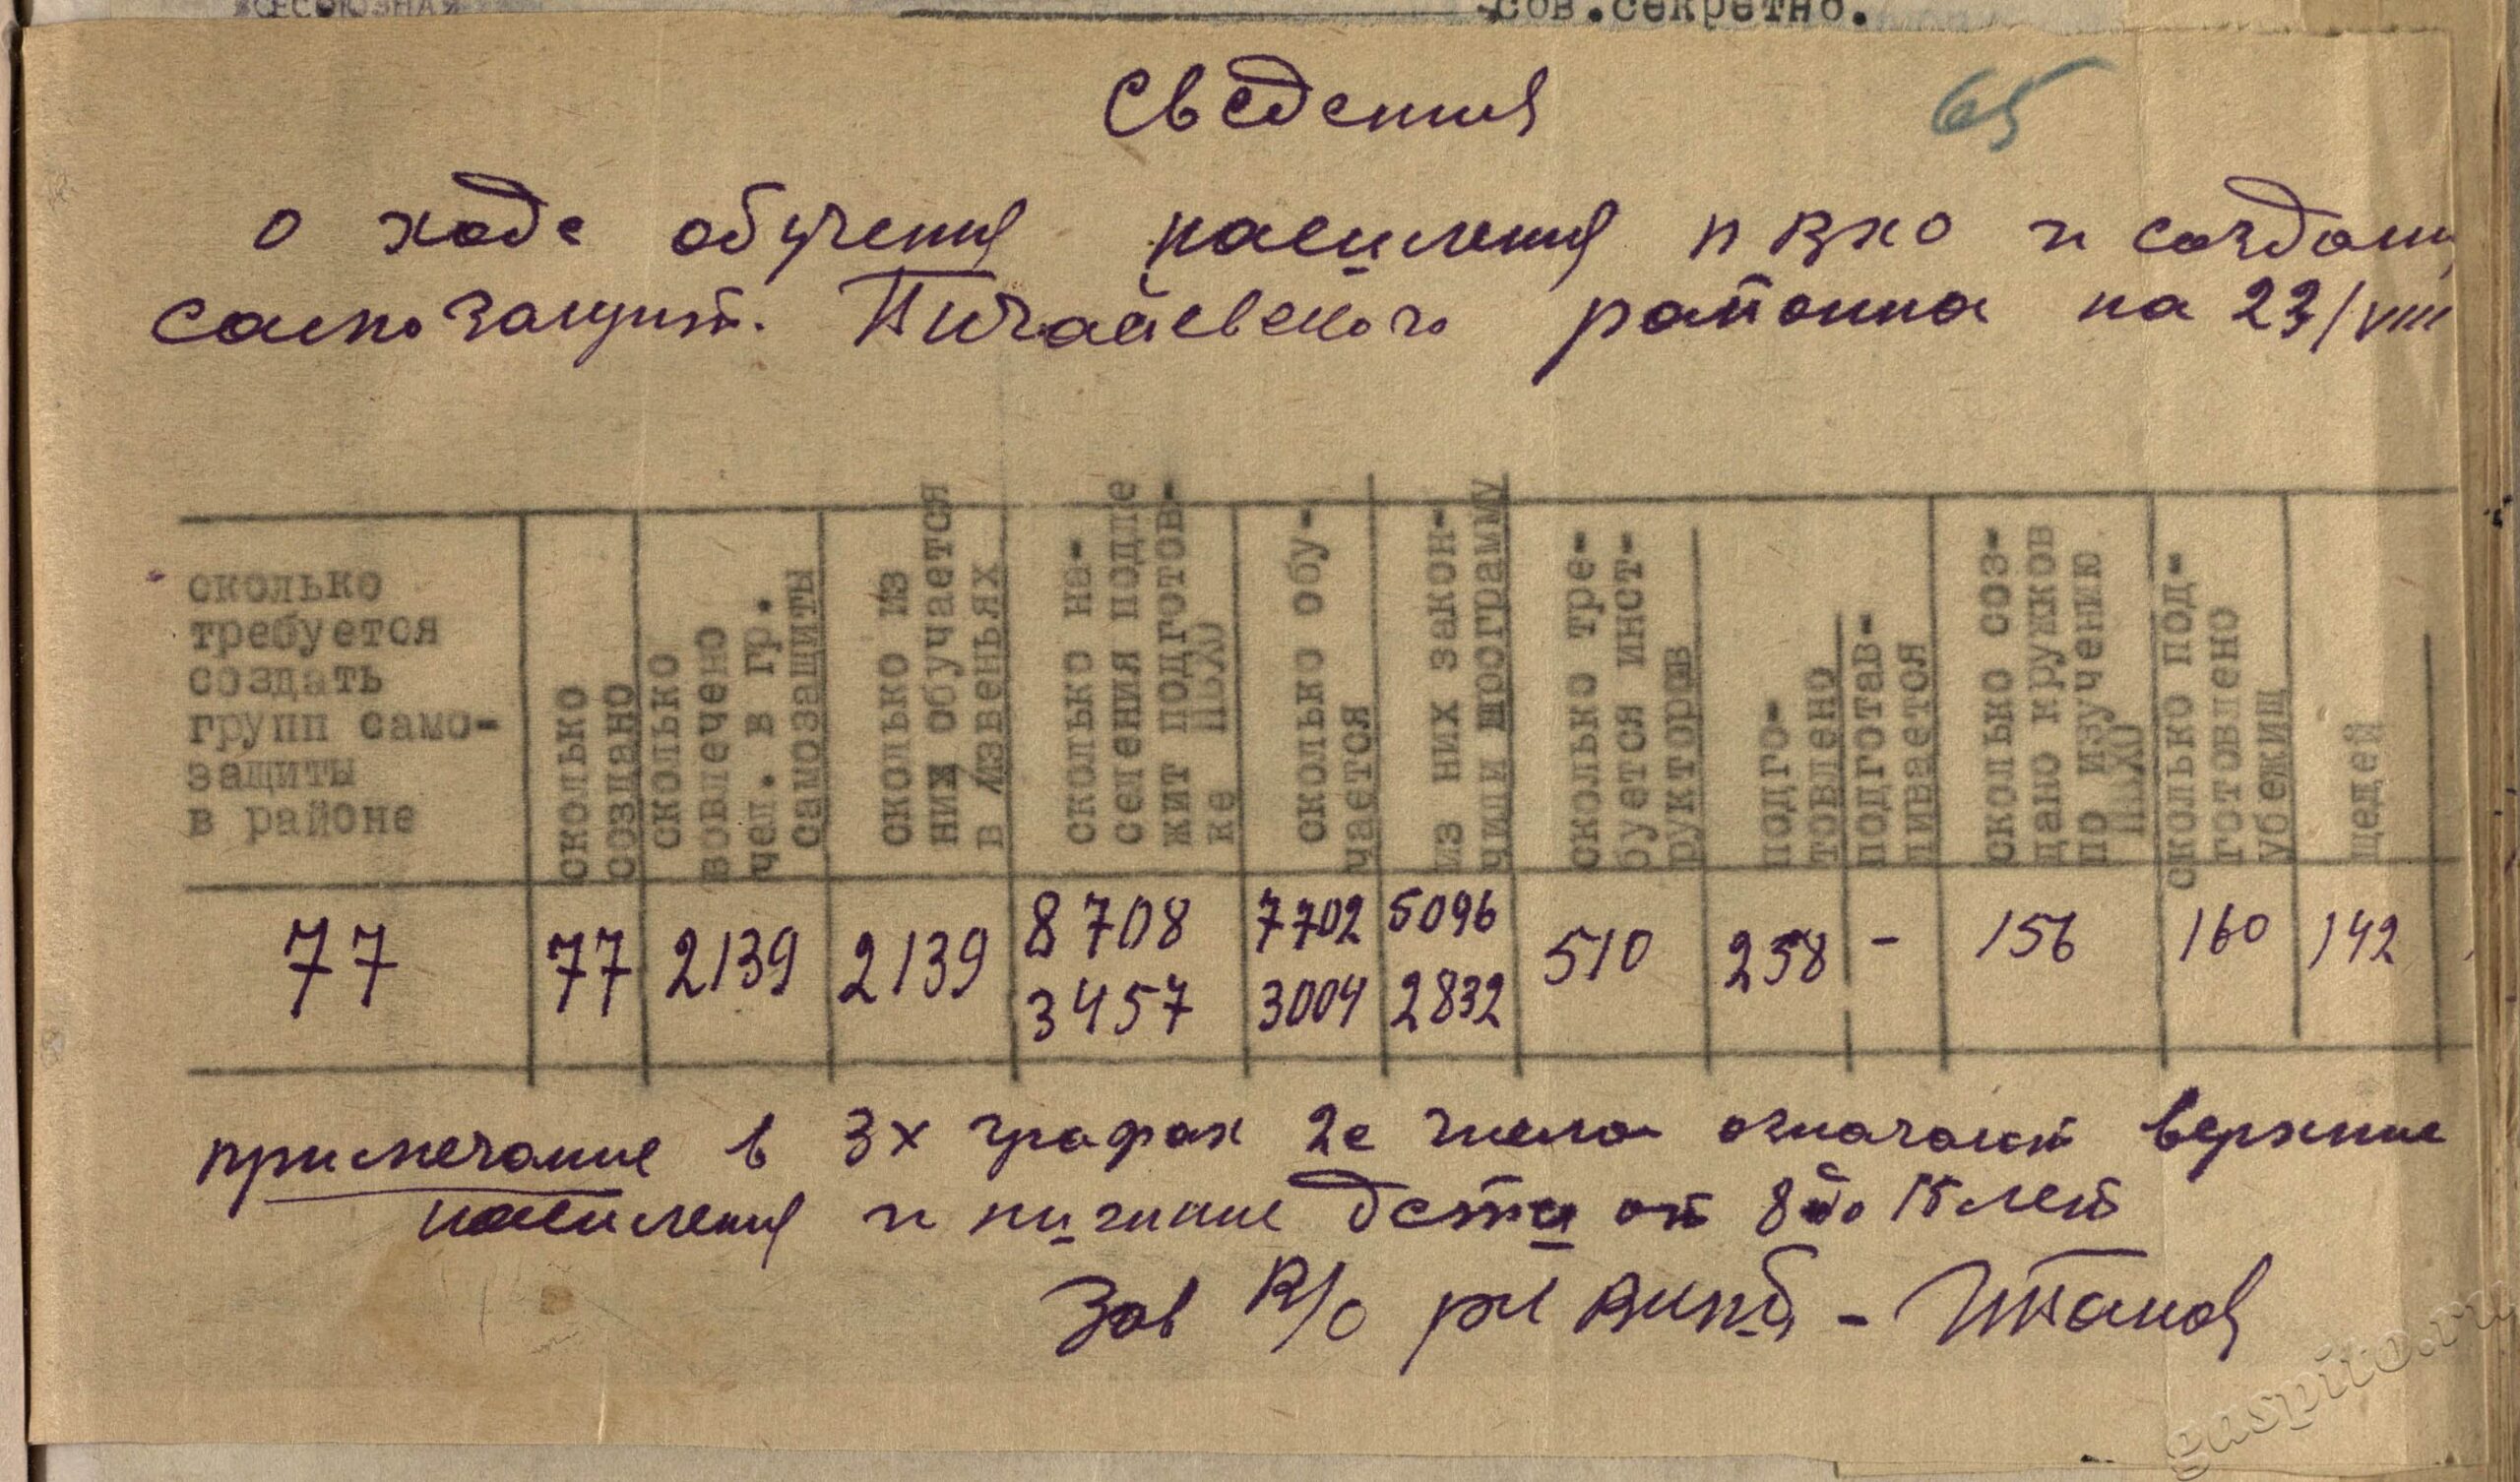 сов.секретно.
65
Сведения
о ходе обучения населения ПВХО и создан
самозащит. Пичаевского района на 23/VIII
сколько
требуется
создать
групп само-
защиты
в районе
сколько
создано
сколько
вовлечено
чел. в гр.
самозащиты
сколько из
них обучается
в звеньях
сколько на-
селения подле
жит подготов-
ке ПВХО
сколько обу-
чается
из них закон-
чили программу
сколько тре-
буется инст-
рукторов
подго-
товлено
подготав-
ливается
сколько соз-
дано кружков
по изучению
ПВХО
сколько под-
готовлено
убежищ
щелей
77 77 2139 2139 8708 7702 5096 510 258 - 156 160 142
3457 3004 2832
примечание в 3х графах 2е числа означают верхние
населения и нижние дети от 8 до 15 лет
Зав В/О РК ВКПб -
gaspito.ru